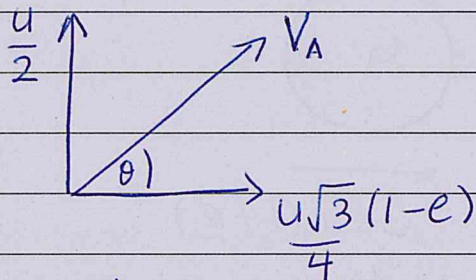 u/2
V_A
θ
u√3/4 (1-e)